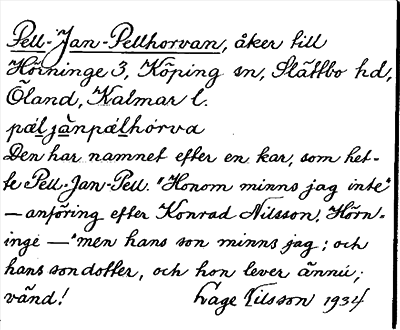 Pell-Jan-Pellhorvan, åker till
Hörninge 3, Köping sn, Slättbo hd,
Öland, Kalmar l.
pæl jànpælhórva
Den har namnet efter en kar, som het-
te Pell-Jan-Pell. "Honom minns jag inte"
— anföring efter Konrad Nilsson, Hörn-
inge — "men hans son minns jag; och
hans sondotter, och hon lever ännu;
vänd! Lage Tilsson 1934